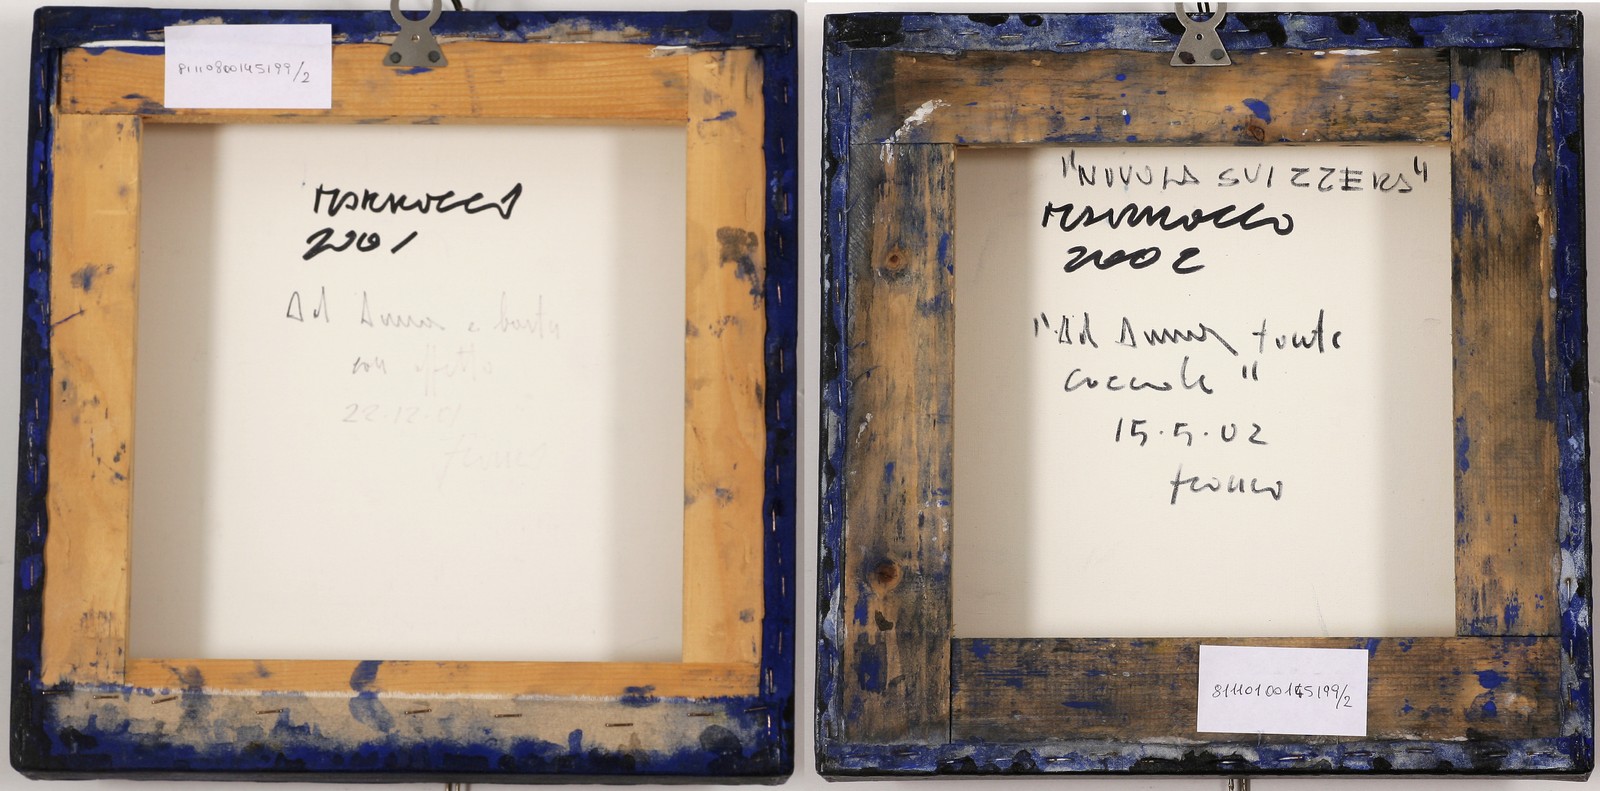 81110800145199/2
MARROCCO
2001
Ad Anna e
con affetto
22.12.01
Franco
"NUVOLA SVIZZERA"
MARROCCO
2002
"Ad Anna tante
coccole"
15.5.02
Franco
81110100145199/2